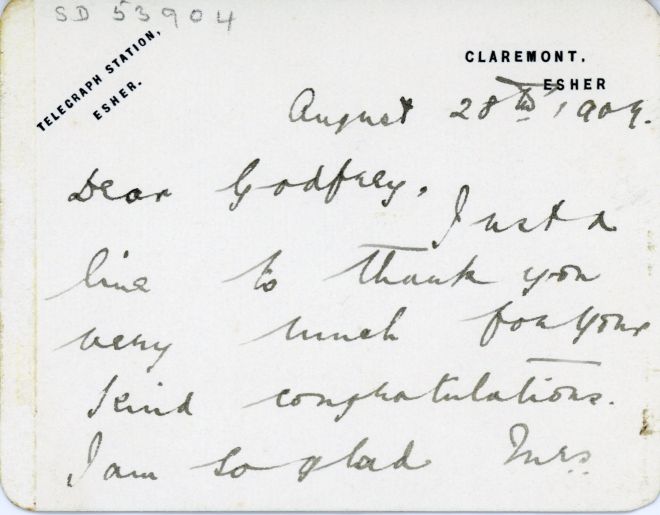 SD 53904
TELEGRAPH STATION,
ESHER.
CLAREMONT,
ESHER
August 28th 1904.
Dear Godfrey,
Just a
line to thank you
very much for your
kind congratulations.
I am so glad Mrs.